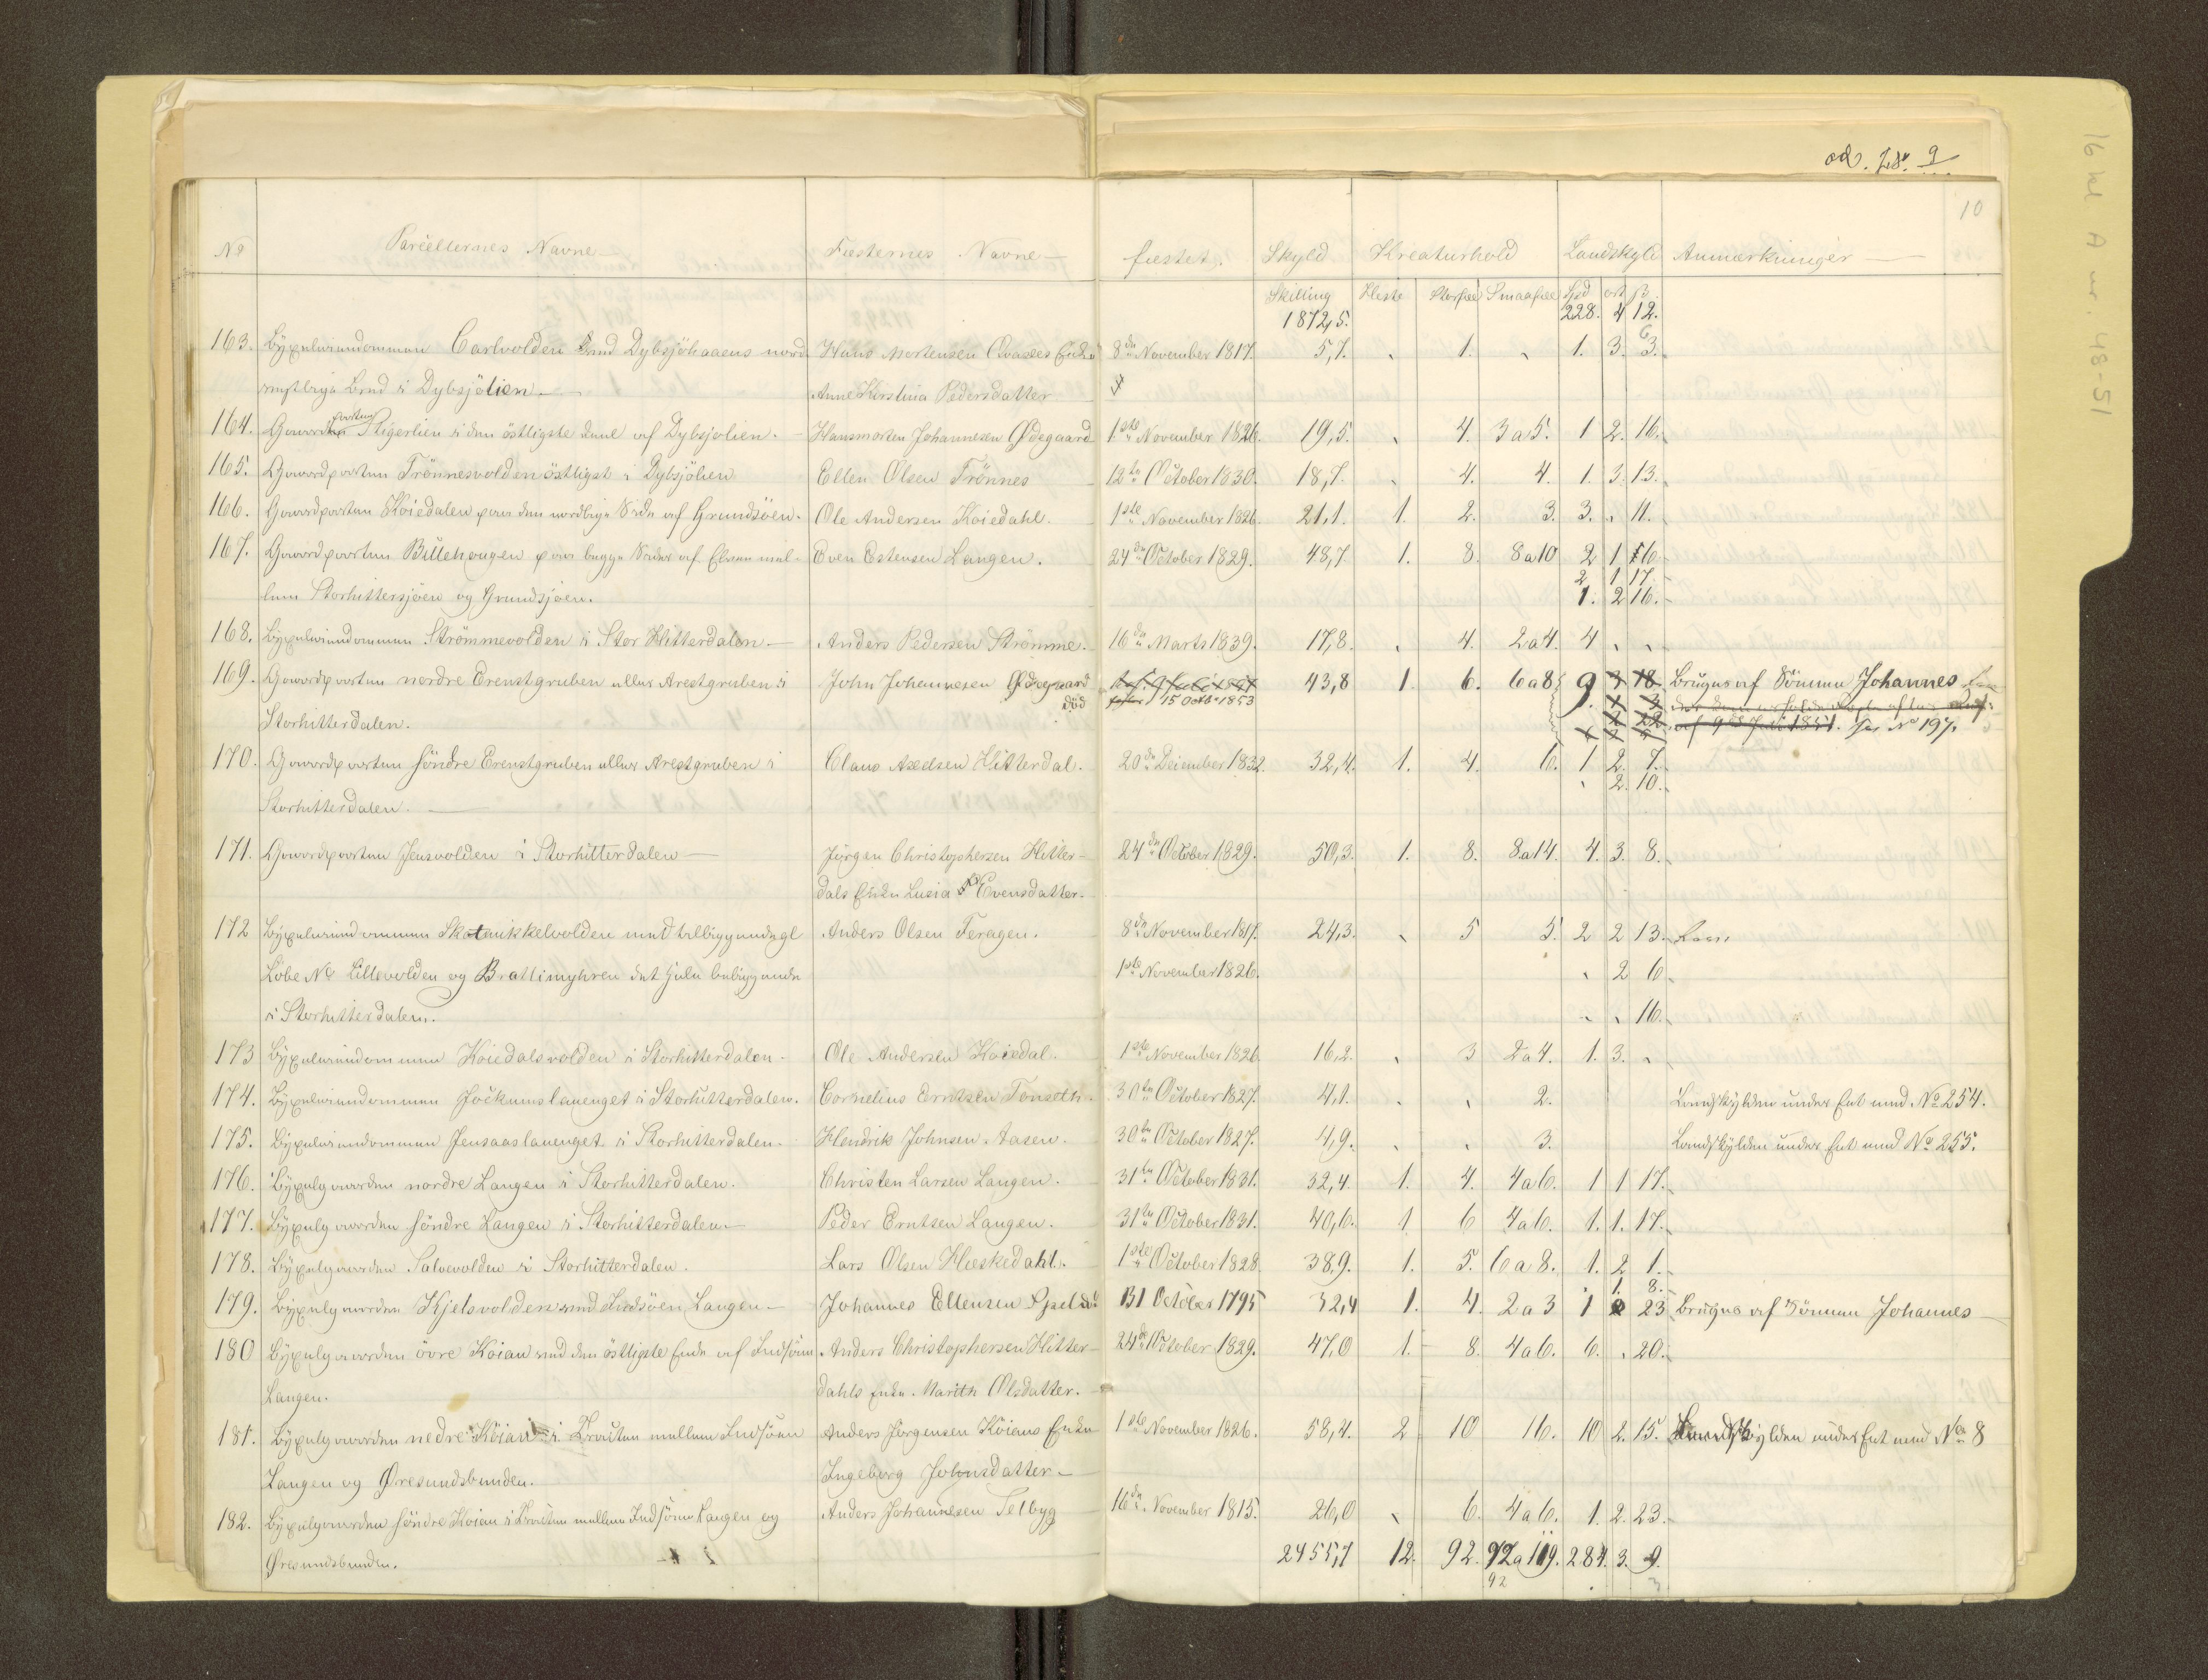 od. 9
10
16 A nr. 48-51
No Parcellernes Navne Fæsternes Navne fæstet. Skyld Kreaturhold Landskyld Anmærkninger
Skilling Heste Storfæe Smaafæe Spd ort ß
1872,5. 228. 4 12.
163. Bÿxeleiendommen Carlvolden ved Dybsjöhaaens nord Hans Mortensen Qvaales Enke 8de November 1817. 5,7. 1. 1. 3. 3. 6
vestlige Ende i Dybsjölien Anne Kirstina Pedersdatter
164. Gaardparten Stigerlien i den östligste deel af Dybsjølien. Hansmorten Johannesen Ødegaard 1ste November 1826. 19,5. 4. 3 a 5. 1 2. 16.
165. Gaardparten Trönnesvolden östligst i Dybsjölien Ellen Olsen Trönnes 12te October 1830. 18,7. 4. 4. 1. 3. 13.
166. Gaardparten Koiedalen paa den nordlige Side af Grundsöen. Ole Andersen Koiedahl. 1ste November 1826. 21,1. 1. 2. 3. 3. 11.
167. Gaardparten Billehougen paa begge Sider af Elven mel- Even Estensen Langen. 24de October 1829. 48,7. 1. 8. 8 a 10 2 1 16
2 1 17.
lem Storhittersjöen og Grundsjöen. 1. 2 16.
168. Bÿxeleiendommen Strömmevolden i Stor Hitterdalen. Anders Pedersen Strömme. 16de Marts 1839. 17,8. 4. 2 a 4. 4
169. Gaardparten nordre Erenstgruben eller Arestgruben i John Johannesen Ødegaard 43,8 1. 6. 6 a 8. 9. 3 18 Bruges af Sönnen Johannes
Storhitterdalen. död 15 Octb. 1853 af 9de Juli 1851. see No 197.
170. Gaardparten söndre Erenstgruben eller Arestgruben i Claus Axelsen Hitterdal. 20de December 1832. 32,4. 1. 4. 6. 1. 2. 7.
Storhitterdalen. 2. 10.
171. Gaardparten Jensvolden i Storhitterdalen Jörgen Christophersen Hitter- 24de October 1829. 50,3. 1. 8. 8 a 14. 4. 3. 8.
dals Enke Lusia Evensdatter.
172 Bÿxeleiendommen Skatmikkelvolden med tilliggende Anders Olsen Feragen. 8de November 1817. 24,3. 5 5. 2 2 13.
Löbe No Lillevolden og Brattimyhren det hele beliggende 1ste November 1826. 2 6
i Storhitterdalen. 16.
173 Bÿxeleiendommen Koiedalsvolden i Storhitterdalen. Ole Andersen Koiedal. 1ste November 1826 16,2. 3 2 a 4. 1. 3.
174. Bÿxeleiendommen Jockumslauenget i Storhitterdalen. Cornelius Erntsen Tonseth. 30te October 1827. 4,1. 2. Landskylden under Eet med No 254.
175. Bÿxeleiendommen Jensaaslauenget i Storhitterdalen. Hendrik Johnsen Aasen. 30te October 1827. 4,9. 3. Landskylden under Eet med No 255.
176. Bÿxelgaarden nordre Langen i Storhitterdalen. Christen Larsen Langen. 31te October 1831. 32,4. 1. 4. 4 a 6. 1 1 17.
177. Bÿxelgaarden söndre Langen i Storhitterdalen. Peder Erntsen Langen. 31te October 1831. 40,6. 1 6 4 a 6. 1. 1. 17.
178. Bÿxelgaarden Salvevolden i Storhitterdalen. Lars Olsen Hæskedahl. 1ste October 1828. 38,9. 1. 5. 6 a 8. 1. 2 1.
1. 8.
179. Bÿxelgaarden Kjelsvolden ved Indsöen Langen Johannes Ellensen 31 October 1795 32,4 1. 4. 2 a 3 1 2 23 Bruges af Sönnen Johannes
180 Bÿxelgaarden övre Koian ved den östligste Ende af Indsöen Anders Christophersen Hitter- 24de October 1829. 47,0 1. 8. 4 a 6. 6. 20.
Langen. dahls Enke Marith Olsdatter.
181. Bÿxelgaarden nedre Koian i Trakten mellem Indsöen Anders Jörgensen Koians Enke 1ste November 1826. 58,4. 2 10 16. 10 2. 15. Landskylden under Eet med No 8
Langen og Øresundsbunden. Ingeborg Johnsdatter
182. Bÿxelgaarden söndre Koian i Trakten mellem Indsöen Langen og Anders Johannesen Selbyg 16de November 1815. 26,0 6. 4 a 6. 1. 2. 23.
Øresundsbunden. 2455,7 12. 92. 92 a 119. 284. 3. 9.
92 3